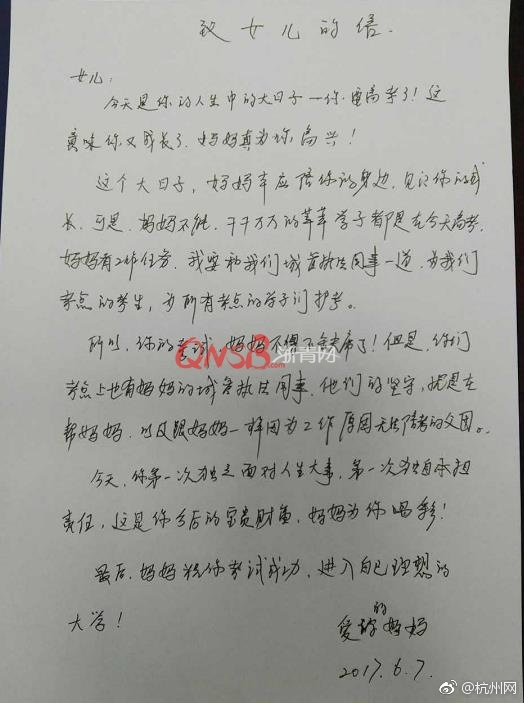 致女儿的信.
女儿:
今天是你的人生中的大日子一你要高考了!这
意味你又成长了.妈妈真为你高兴!
这个大日子,妈妈本应陪你的身边,见证你的成
长.可是.妈妈不能.千千万万的莘莘学子都是在今天高考.
妈妈有工作任务.我要和我们城管执法同事一道.为我们
考点的考生,为所有考点的学子们护考。
所以.你的考试.妈妈不得不缺席了!但是.你们
考点上也有妈妈的城管执法同事.他们的坚守,就是在
帮妈妈.以及跟妈妈一样因为工作原因无法陪考的父母。
今天.你第一次独立面对人生大事.第一次独自承担
责任,这是你今后的宝贵财富,妈妈为你喝彩!
最后.妈妈祝你考试成功.进入自己理想的
大学!
爱你的妈妈
2017.6.7.
QNSB 浙青网
@杭州网